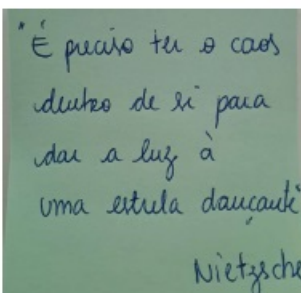 "É preciso ter o caos
dentro de si para
dar a luz à
uma estrela dançante"
Nietzsche